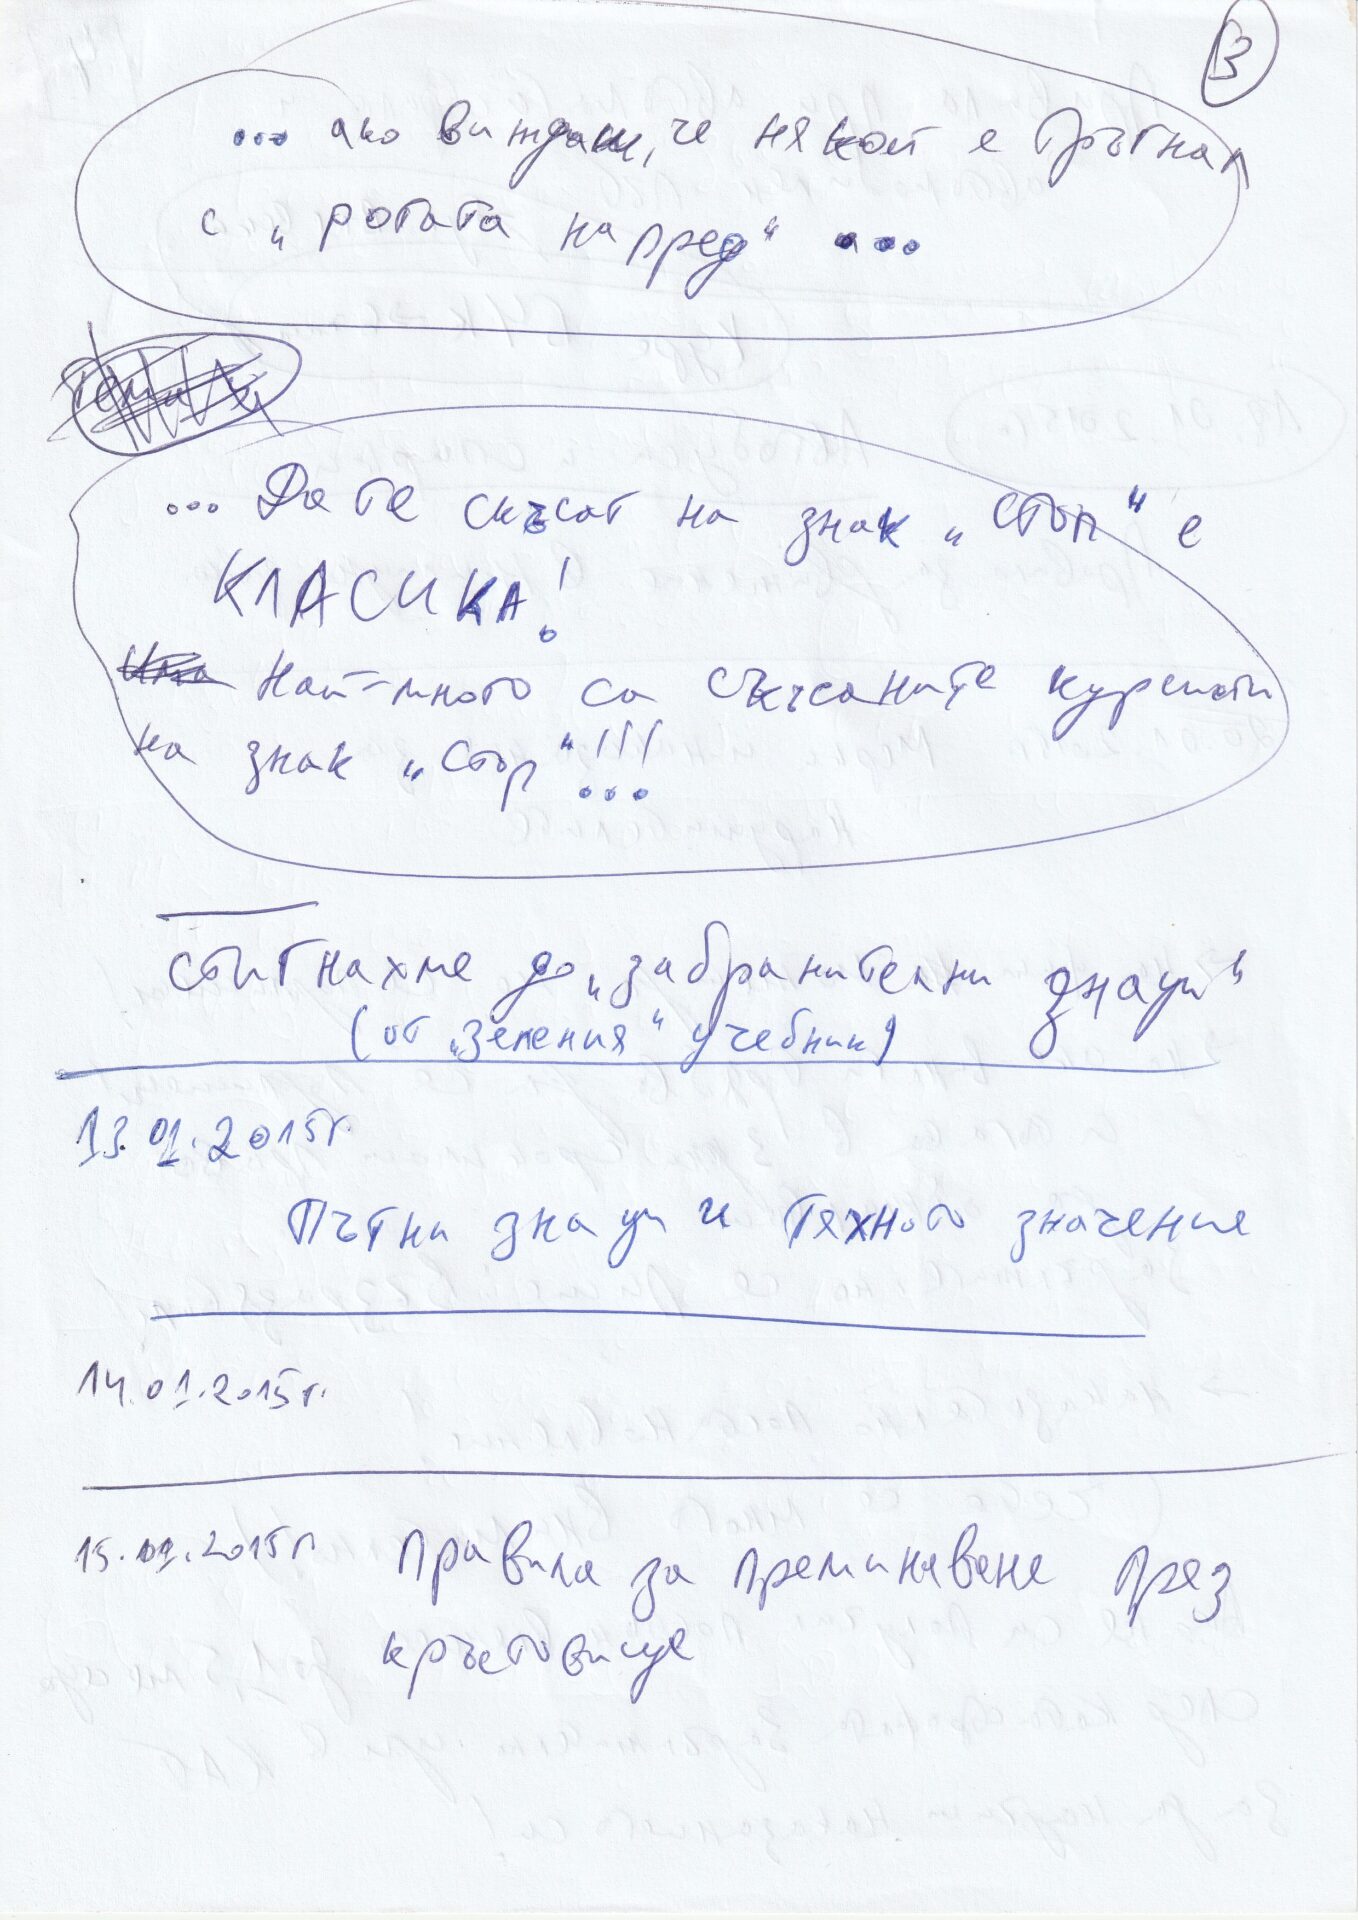 3
... ако виждаш, че някой е тръгнал
с „рогата напред“ ...
... Да те скъсат на знак „СТОП“ е
КЛАСИКА!
Най-много са скъсаните курсисти
на знак „Стоp“!!!...
Стигнахме до „забранителни знаци“
(от „Зеления“ учебник)
13.01.2015г.
Пътни знаци и тяхното значение
14.01.2015г.
15.01.2015г Правила за преминаване през
кръстовище